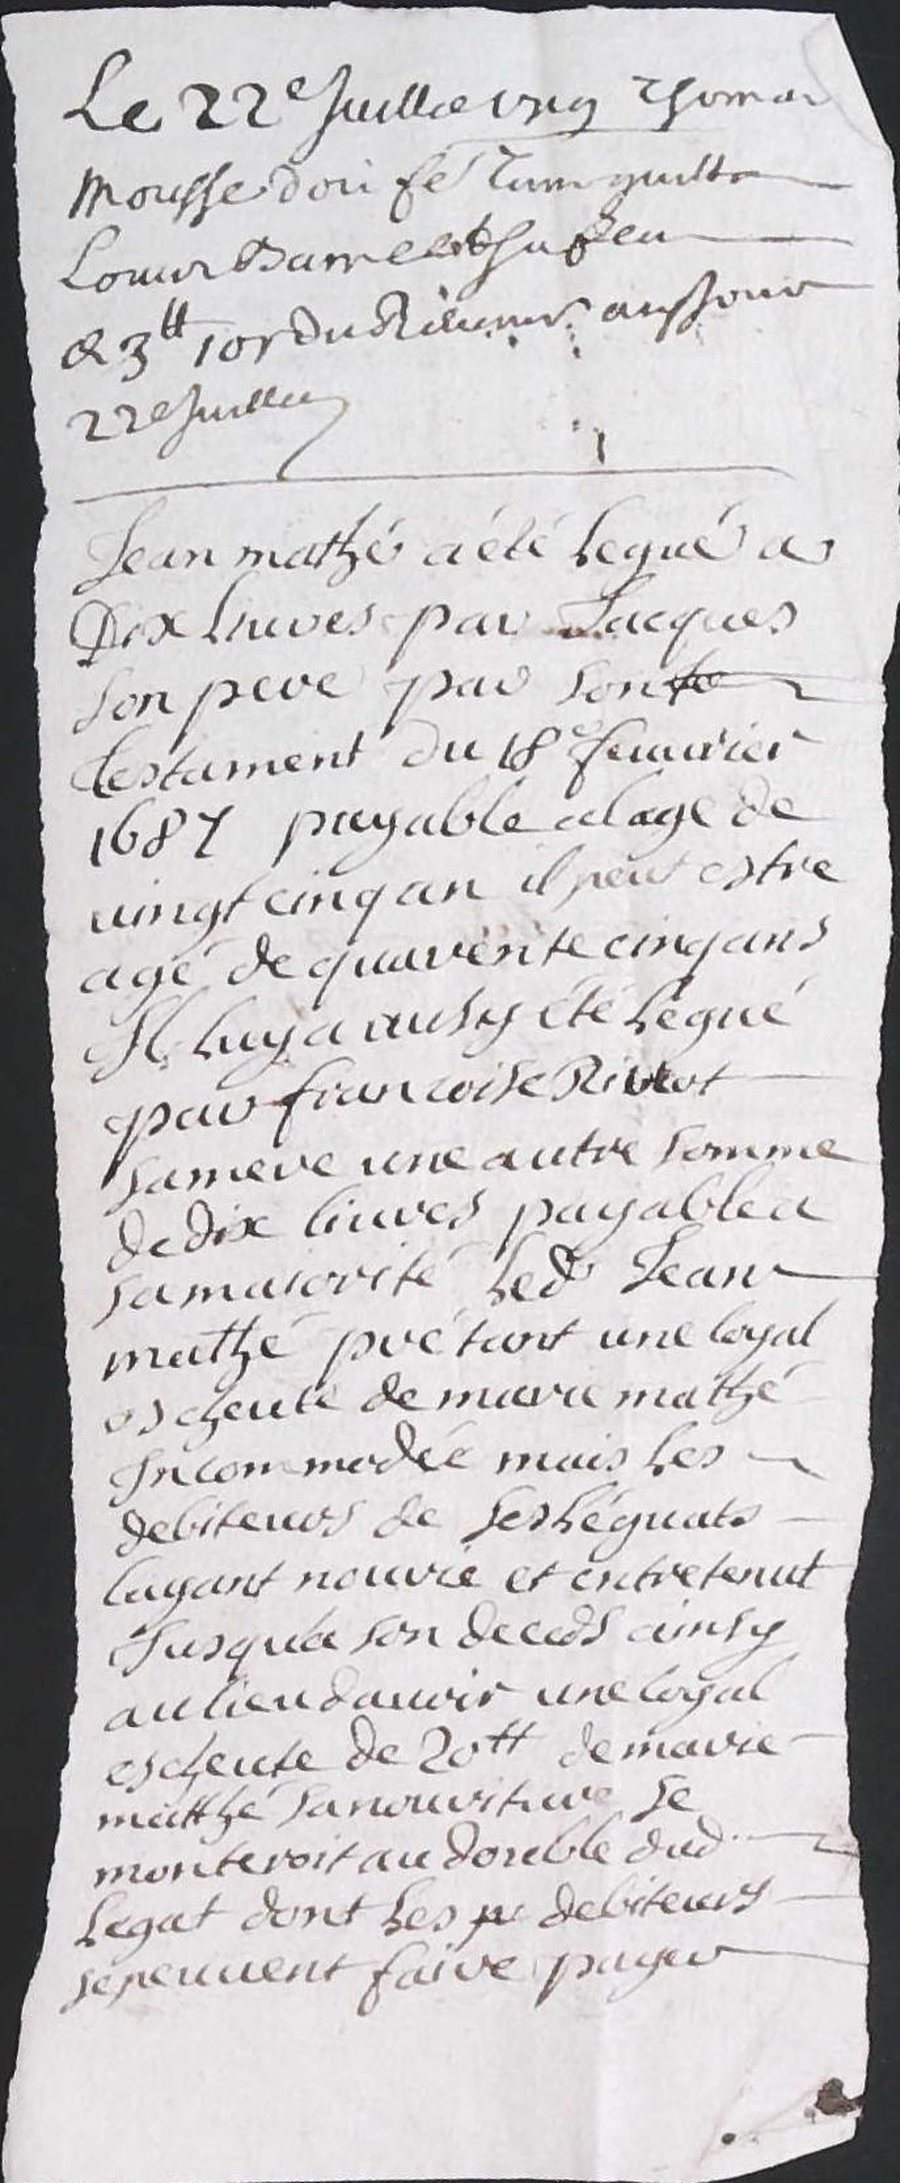 Le 22e Juillie 1719 Thomas
Mousse doit
Louur
& 3tt 10s du
22e Juillie
Jean mathé a été Legué a
Dix Liures par Jacques
son pere par son te
testament du 18e feuurier
1687 payable alage de
uingt cinq an il peut estre
agé de quarente cinq ans
Il luy a ausy été Legué
par francoise Riveot
sa mere une autre somme
de dix liures payable a
samaiorité Led Jean
mathé prétant une loyal
escheute de marie mathé
Incommodée mais Les
debiteurs de ses Léguats
layant nourie et entretenut
Jusqua son deceds ainsy
au lieu dauoir une loyal
escheute de 20tt de marie
matthé sa nouriture se
monteroit au double dud
Legat dont Les pr debiteurs
se peuuent faire payer